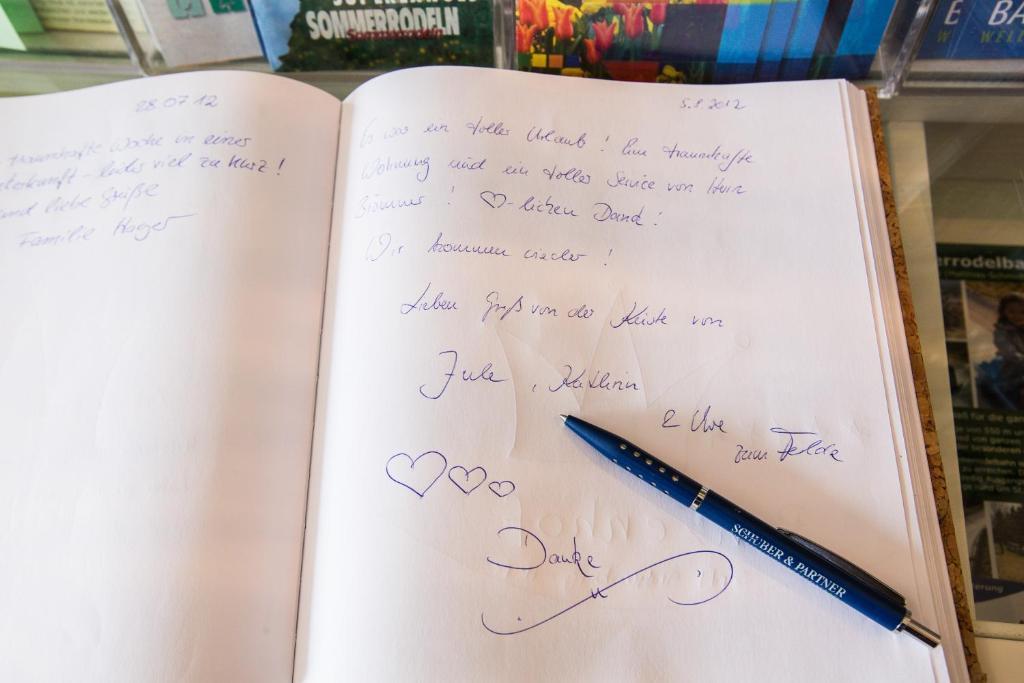 SOMMERRODELN
Sommerrodeln
E BA
WELL
28.07.12
traumhafte Woche in einer
terkunft - leider viel zu kurz!
und liebe Grüße
Familie Hager
5.8.2012
Es war ein toller Urlaub! Eine traumhafte
Wohnung und ein toller Service von Herrn
! ♡-lichen Dank!
Wir kommen wieder!
Lieben Gruß von der Küste von
Jule, Kathrin
& Uwe
zum Felde
Danke
SCHUBER & PARTNER
errodelba